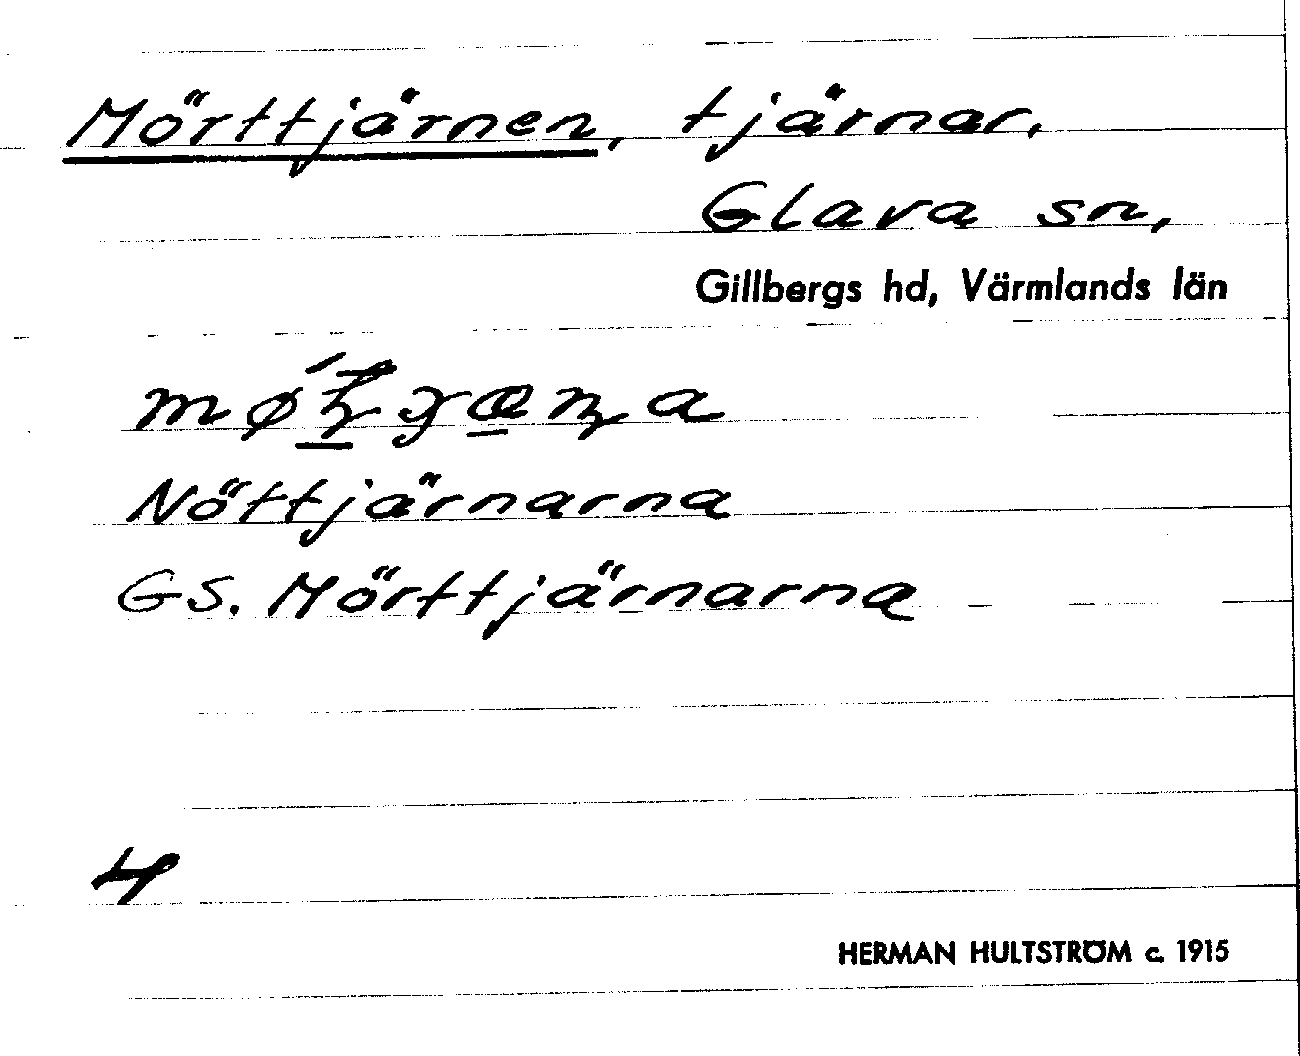 Mörttjärnen, tjärnar.
Glava sn,
Gillbergs hd, Värmlands län
Nöttjärnarna
GS. Mörttjärnarna
4
HERMAN HULTSTRÖM c. 1915